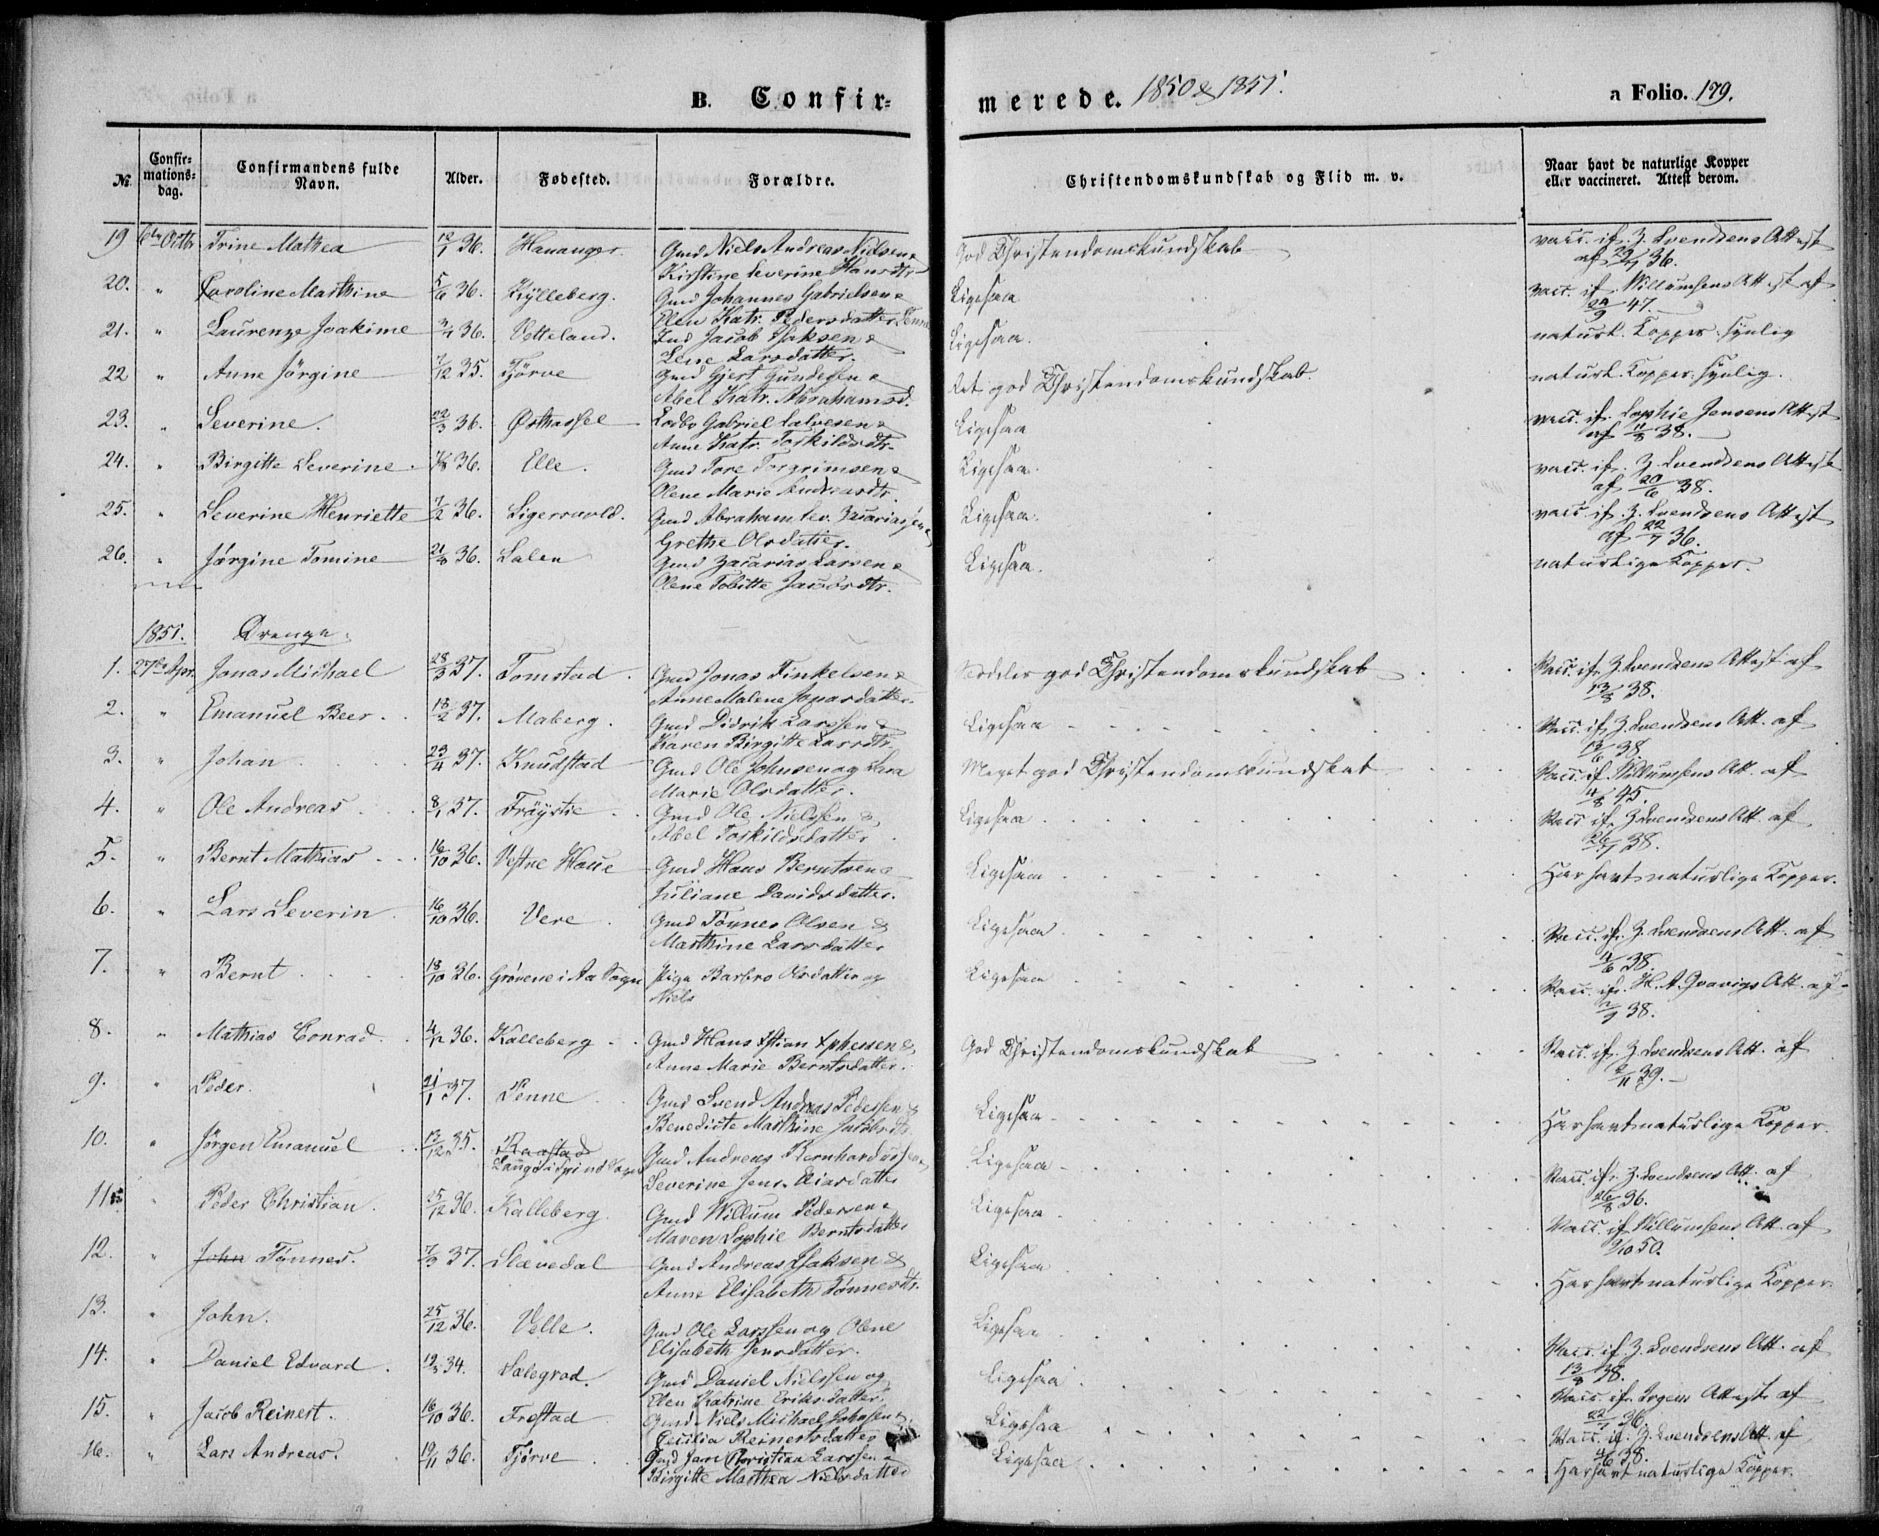 B. Confir=
merede. 1850 & 1851.
a Folio. 179.
№
Confir=
mations=
dag.
Confirmandens fulde
Navn.
Alder.
Fødested.
Forældre.
Christendomskundskab og Flid m. v.
Naar havt de naturlige Kopper
eller vaccineret. Attest derom.
19 6te Octbr Trine Mathea 12/7 36. Hananger Gmd Niels Andreas Nielsen & God Christendomskundskab vacc. if. Z. Svendsens Attest
Kirstine Severine Hansdtr af 23/7 36.
20. " Caroline Marthine 5/6 36. Kylleberg. Gmd Johannes Gabrielsen & Ligesaa vacc. if. Willumsens Attest af
Elen Katr. Pedersdatter Penne 24/9 47.
21. " Laurenze Joakime 3/4 36. Vetteland. Ind Jacob Isaksen & Ligesaa. naturl. Kopper synlig
Lene Larsdatter.
22 " Anne Jörgine 7/12 35. Tjörve Gmd Gjert Gundersen & Ret god Christendomskundskab. naturl. Kopper synlig.
Abel Katr. Abrahamsd.
23. " Severine. 22/3 36. Østhassel Gabriel Salvesen & Ligesaa vacc. if. Sophie Jensens Attest
Anne Katr. Torkildsdtr. af 11/8 38.
24. " Birgitte Severine 36. Elle. Gmd Tore Torgrimsen & Ligesaa. vacc. if. Z. Svendsens Attest
Olene Marie Andreasdtr. af 20/6 38.
25. " Severine Henriette 7/2 36. Ligervold. Gmd Abraham Sev. Zacariassen & Ligesaa. vacc. if. Z. Svendsens Attest
Grethe Olsdatter. af 22/7 36.
26. " Jörgine Tomine 21/8 36. Lalen Gmd Zacarias Larsen & Ligesaa. naturlige Kopper.
Olene Tobitte Jacobsdtr.
1851. Drenge.
1. 27de Apr. Jonas Michael 28/3 37. Tomstad Gmd Jonas Tinkelsen & Særdeles god Christendomskundskab Vacc. if. Z. Svendsens Attest af
Anne Malene Jesparsdatter. 13/8 38.
2. " Emanuel Beer. 18/2 37. Maberg. Gmd Didrik Larssen & Ligesaa Vacc. if. Z. Svendsens Att. af
Karen Birgitte Larsdtr. 13/6 38.
3. " Johan 23/4 37. Knudstad Gmd Ole Johnsen og Sara Meget god Christendomskundskab Vacc. if. Willumsens Att. af
Marie Olsdatter. 4/8 45.
4. " Ole Andreas 8/1 37. Fröystie Gmd Ole Nielssen & Ligesaa Vacc if. Z. Svendsens Att. af
Abel Torkildsdatter 26/7 38.
5. " Bernt Mathias 16/10 36. Vestre Haue Gmd Hans Berntsen & Ligesaa Har havt naturlige Kopper.
Juliane Davidsdatter.
6. " Lars Severin 16/10 36. Vere Gmd Tönnes Olsen & Ligesaa Vacc. if. Z. Svendsens Att. af
Marthine Larsdatter 11/6 38.
7. " Bernt 18/10 36. Grövene i Aa Sogn Pige Barbro Olsdatter og Ligesaa Vacc. if. H. A. Qvavigs Att. af
Niels 2/9 38.
8. " Mathias Conrad. 4/12 36. Kalleberg Gmd Hans Xstian Xphersen & God Christendomskundskab Vacc. if. Z. Svendsens Att. af
Anne Marie Berntsdatter. 2/11 39.
9. " Peder. 21/1 37. Penne Gmd Svend Andreas Pedersen & Ligesaa Har havt naturlige Kopper.
Benedicte Marthine Jacobsdtr.
10. " Jörgen Emanuel 13/12 35. Raastad Gmd Andreas Bernhardussen Ligesaa Vacc. if. Z. Svendsens Att. af
Langö i Spind Sogn Severine Jens Eliasdatter 26/8 36.
11. " Peder Christian. 25/12 36. Kalleberg. Gmd Willum Pedersen & Ligesaa Vacc. if. Willumsens Att. af
Maren Sophie Berntsdatter 9/10 50.
12. " John Tönnes. 7/3 37. Slævedal Gmd Andreas Isaksen & Ligesaa Har havt naturlige Kopper.
Anne Elisabeth Tönnesdtr.
13. " John. 25/12 36. Velle. Gmd Ole Larssen og Olene Ligesaa Vacc. if. Z. Svendsens Att. af
Elisabeth Jensdatter. 13/8 38.
14. " Daniel Edvard 19/3 34. Sælegrod. Gmd Daniel Nielssen og Ligesaa Vacc. if. Attest af
Elen Katrine Eriksdatter. 22/7 36.
15. " Jacob Reinert. 16/10 36. Frestad Gmd Niels Michael Johnsen & Ligesaa Vacc. if. Z. Svendsens Att. af
Cecilia Reinertsdatter 4/6 38.
16. " Lars Andreas. 19/11 36. Tjörve Gmd Jens Christian Larssen & Ligesaa Har havt naturlige Kopper.
Birgitte Marthea Nielsdatter